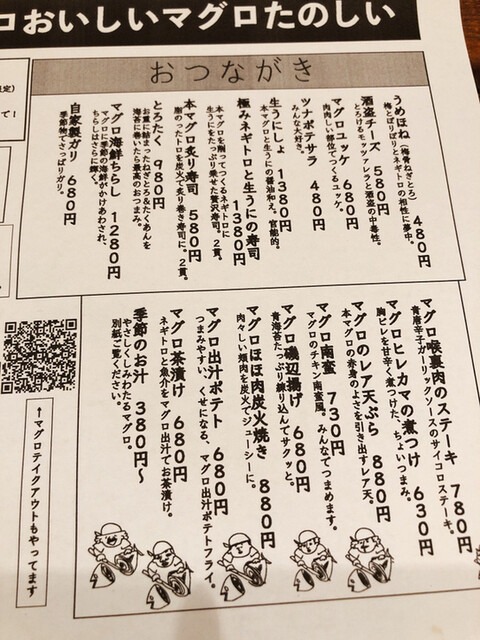 コおいしいマグロたのしい
おつながき
うめほね(梅骨ねぎとろ) 480円
梅とぽりぽりとネギトロの相性に夢中。
酒盗チーズ 580円
とろけるモッツァレラと酒盗の中毒性。
マグロユッケ 680円
肉肉しい部位でつくるユッケ。
ツナポテサラ 480円
みんな大好き。
生うにしょ 1380円
本マグロと生うにの醤油和え。官能的。
極みネギトロと生うにの寿司 1380円
本マグロを削ってつくるネギトロに
生うにをたっぷり乗せた贅沢寿司。2貫。
本マグロ炙り寿司 580円
脂のったトロを炭火で炙り巻き寿司に。2貫。
とろたく 980円
お重に詰まったねぎとろ&たくあんを
海苔に巻いたら最高のおつまみ。
マグロ海鮮ちらし 1280円
マグロに季節の海鮮がかけあわされ、
ちらしはさらに輝く。
自家製ガリ 680円
季節物でさっぱりガリ。
マグロ喉裏肉のステーキ 780円
青唐辛王ガーリックソースのサイコロステーキ。
マグロヒレカマの煮つけ 630円
胸ビレを甘辛く煮つけた、ちょいつまみ。
マグロのレア天ぷら 880円
本マグロの赤身のよさを引き出すレア天。
マグロ南蛮 730円
マグロのチキン南蛮風。みんなでつまめます。
マグロ磯辺揚げ 680円
青海苔たっぷり練り込んでサクッと。
マグロほほ肉炭火焼き 880円
肉々しい頬肉を炭火でジューシーに。
マグロ出汁ポテト 680円
つまみやすい、くせになる、マグロ出汁ポテトフライ。
マグロ茶漬け 680円
ネギトロと魚介をマグロ出汁でお茶漬け。
季節のお汁 380円〜
やさしくしみわたるマグロ。
別紙ご覧ください。
←マグロテイクアウトもやってます